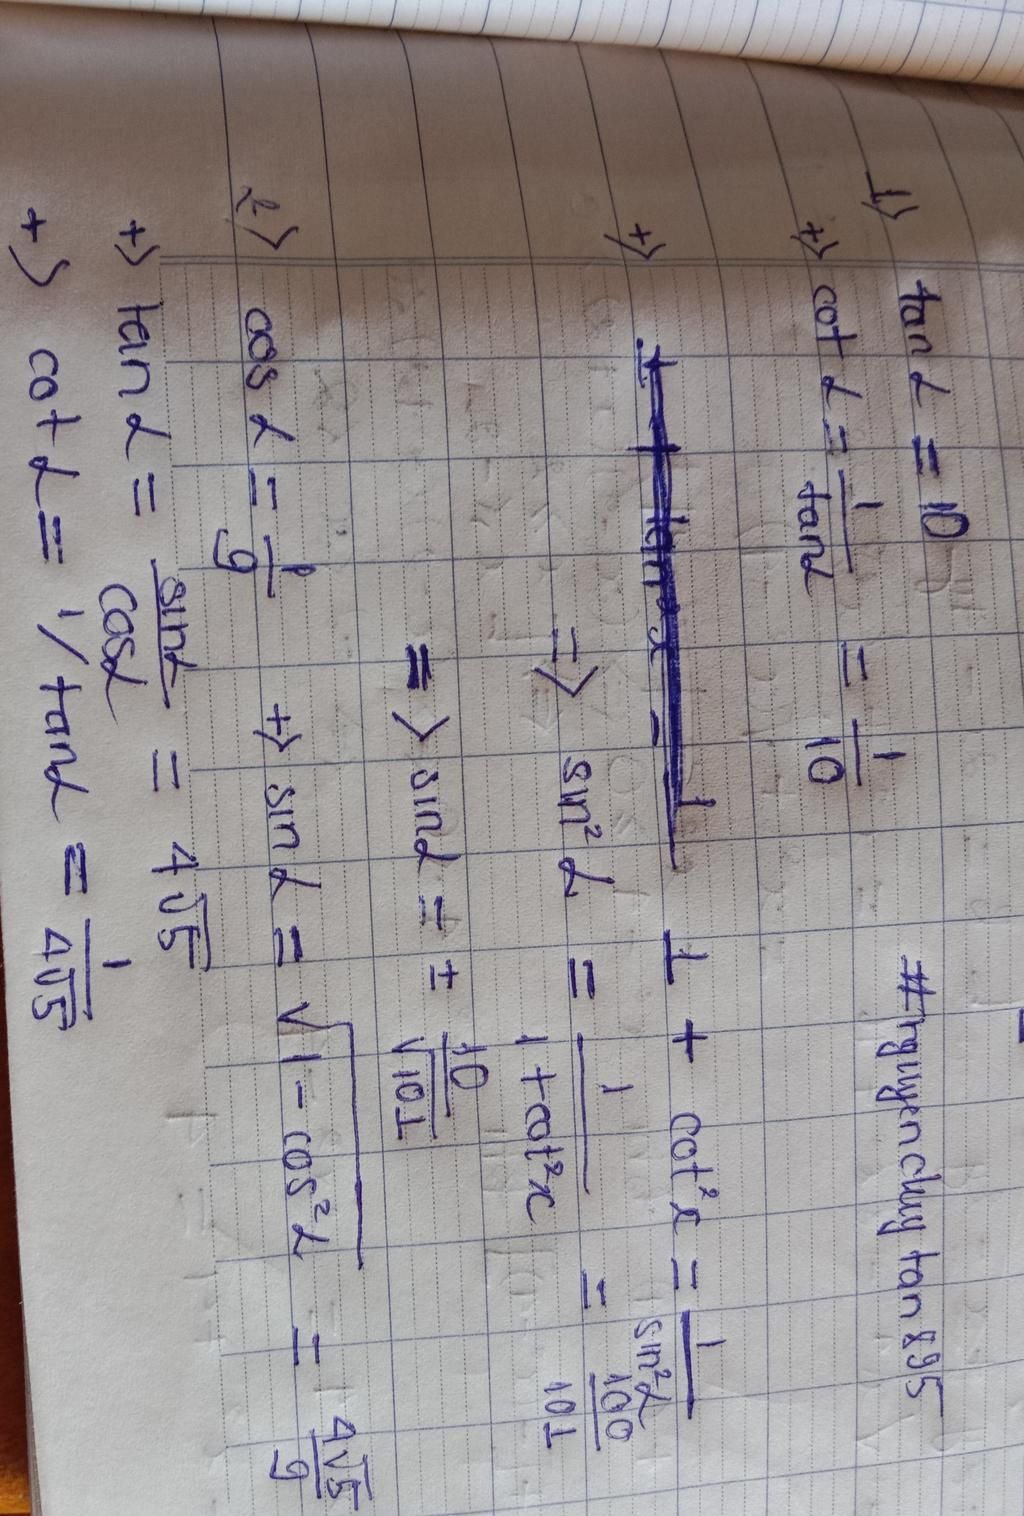 1) tan α = 10
#nguyenduytan895
+) cot α = 1/tanα = 1/10
+) 1 + cot²x = 1/sin²α
=> sin²α = 1/1+cot²x = 100/101
=> sinα = ± 10/√101
2) cos α = 1/9 +) sin α = √1-cos²α = 4√5/9
+) tan α = sinα/cosα = 4√5
+) cot α = 1/tanα = 1/4√5